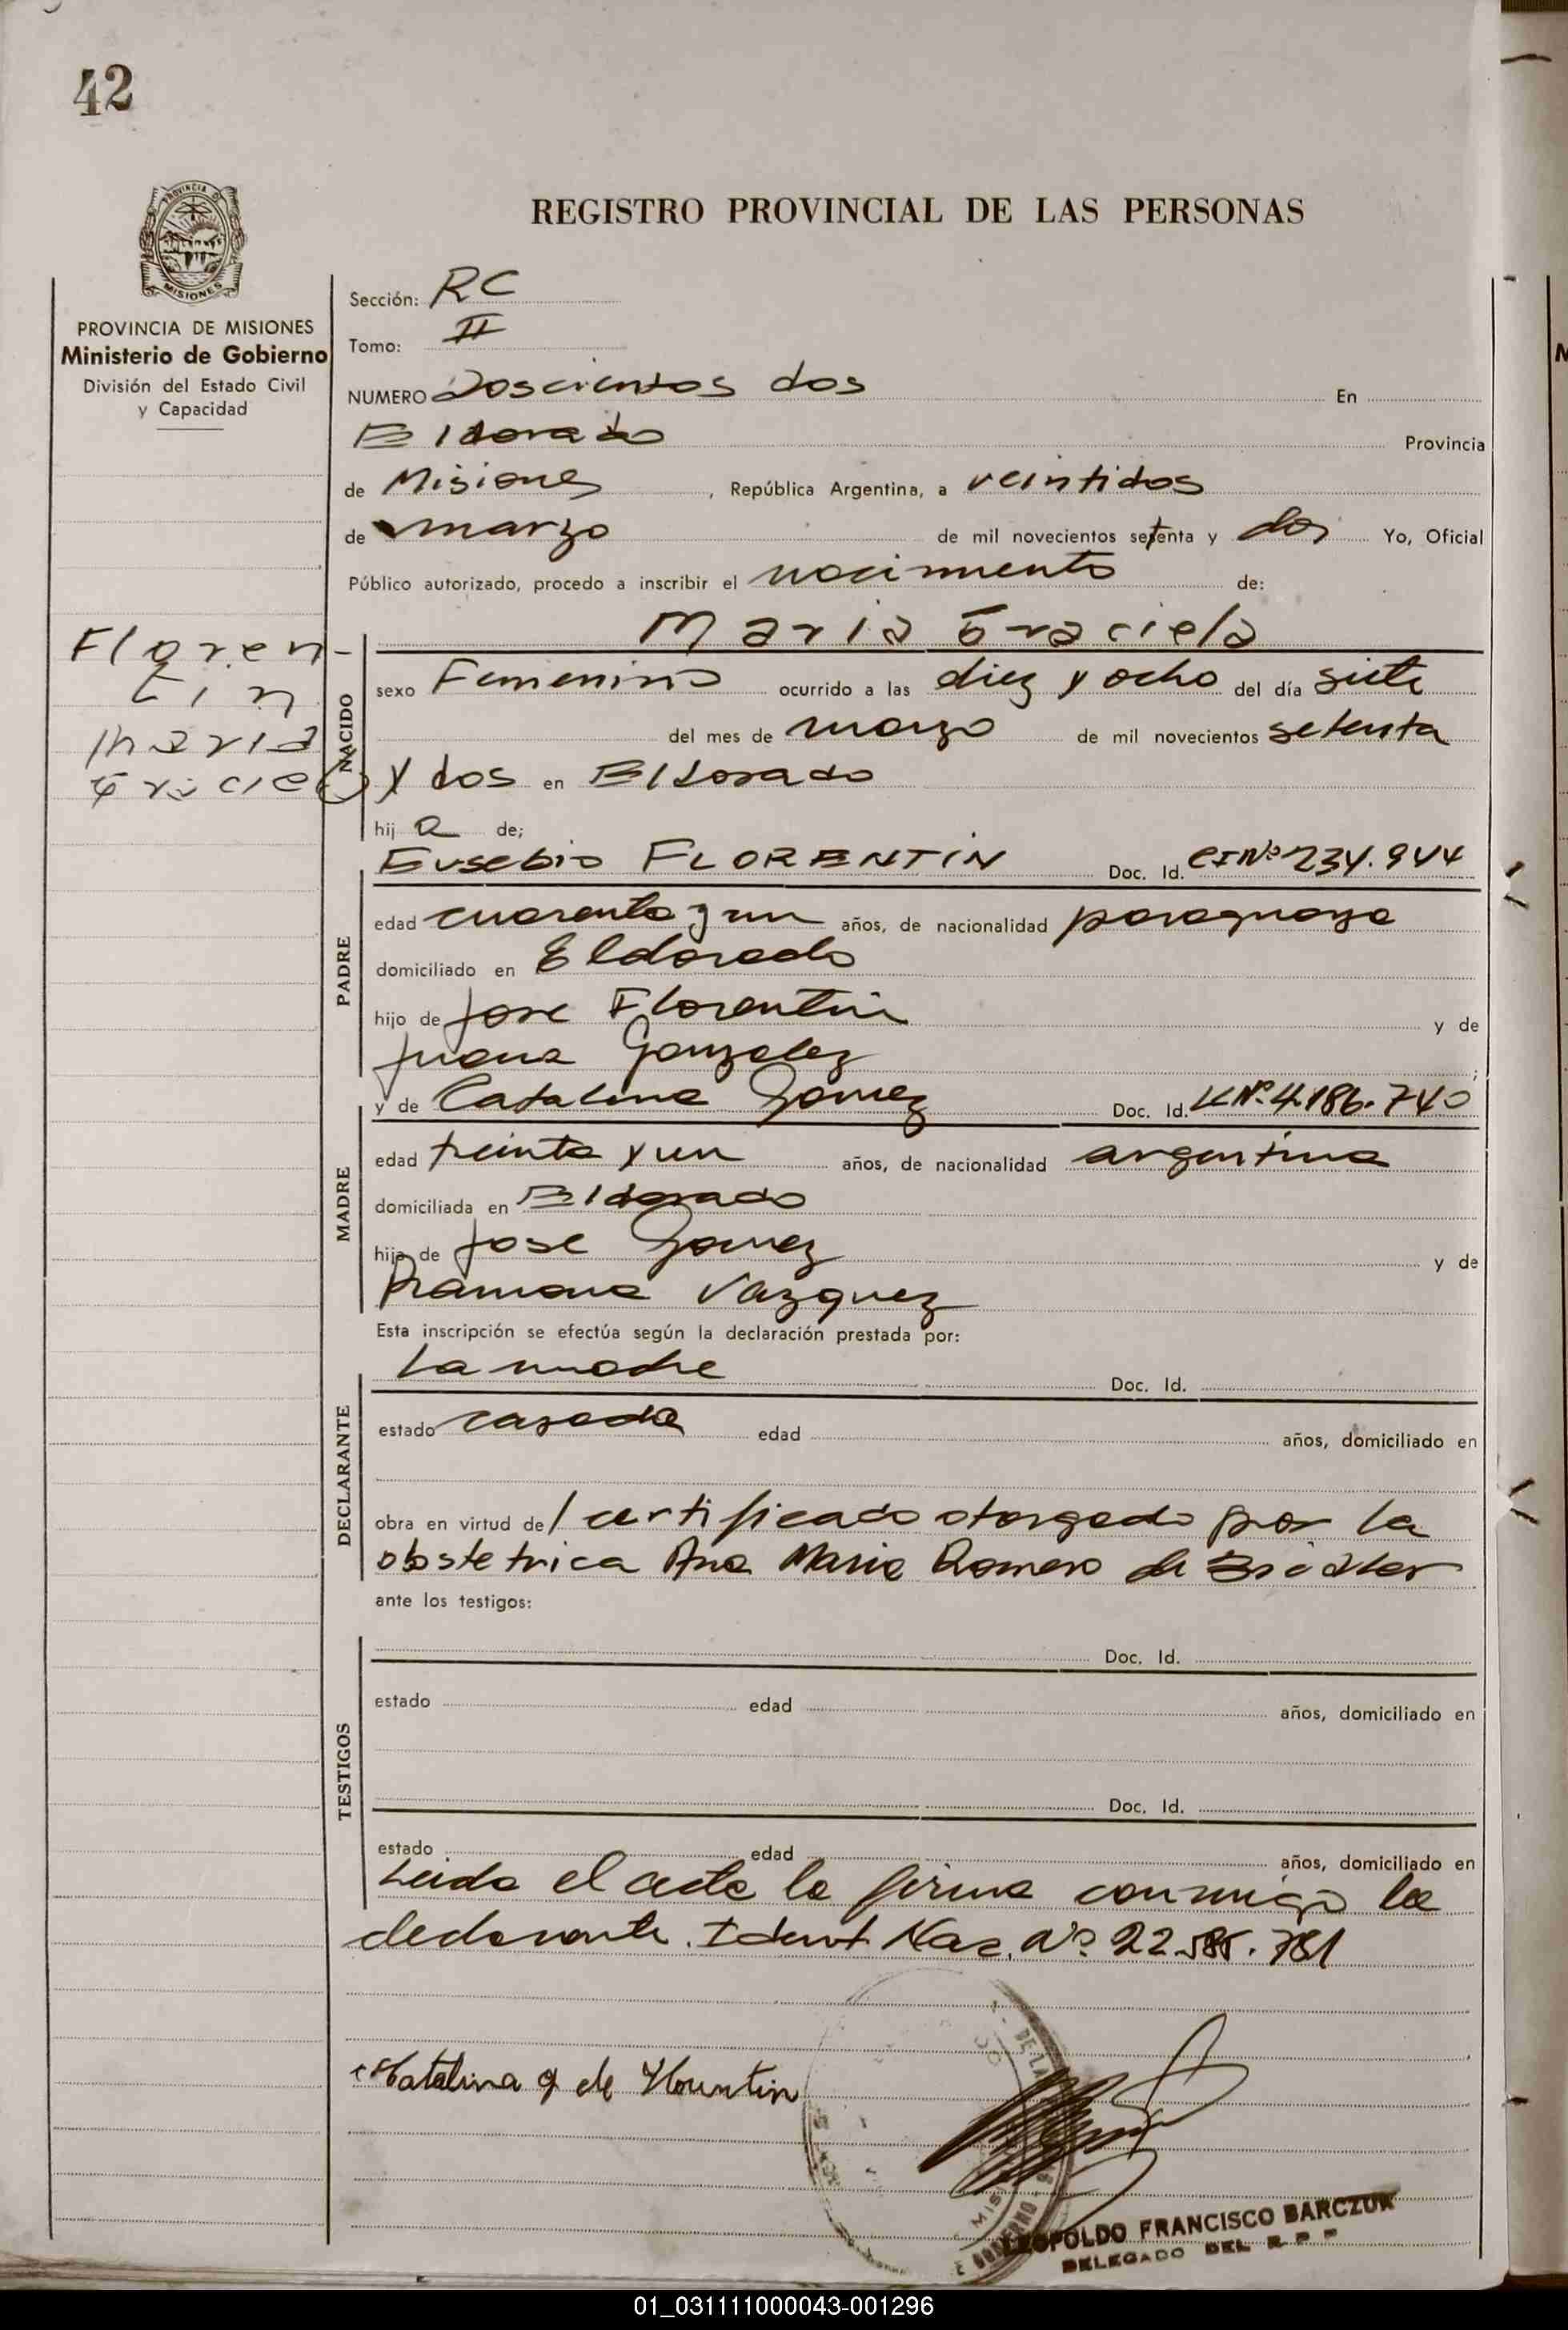 42
PROVINCIA DE
MISIONES
REGISTRO PROVINCIAL DE LAS PERSONAS
PROVINCIA DE MISIONES
Ministerio de Gobierno
División del Estado Civil
y Capacidad
Sección: RC
Tomo: II
NUMERO Doscientos dos En
Eldorado Provincia
de Misiones, República Argentina, a veintidos
de marzo de mil novecientos setenta y dos Yo, Oficial
Público autorizado, procedo a inscribir el nacimiento de:
Maria Graciela
Floren-
tin
Maria
Graciel
NACIDO
sexo Femenino ocurrido a las diez y ocho del día siete
del mes de marzo de mil novecientos setenta
y dos en Eldorado
hija de;
Eusebio FLORENTIN Doc. Id. CI Nº 234.944
PADRE
edad cuarenta y un años, de nacionalidad paraguaya
domiciliado en Eldorado
hijo de Jose Florentin y de
Juana Gonzalez;
y de Catalina Gomez Doc. Id. LC Nº 4.186.740
MADRE
edad treinta y un años, de nacionalidad argentina
domiciliada en Eldorado
hija de Jose Gomez y de
Ramona Vazquez
Esta inscripción se efectúa según la declaración prestada por:
La madre Doc. Id.
DECLARANTE
estado casada edad años, domiciliado en
obra en virtud del certificado otorgado por la
obstetrica Ana Maria Romero de
ante los testigos:
Doc. Id.
TESTIGOS
estado edad años, domiciliado en
Doc. Id.
estado edad años, domiciliado en
Leida el acta la firma conmigo la
declarante. Ident Nac. Nº 22.585.781
Catalina g de Florentin
LEOPOLDO FRANCISCO BARCZUK
DELEGADO DEL R P P
01_031111000043-001296